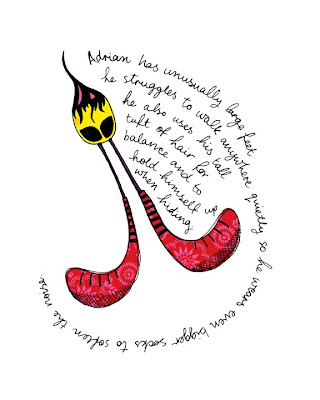 Adrian has unusually large feet
he struggles to walk anywhere quietly so he wears even bigger socks to soften the noise.
he also uses his tall
tuft of hair for
balance and to
hold himself up
when hiding.